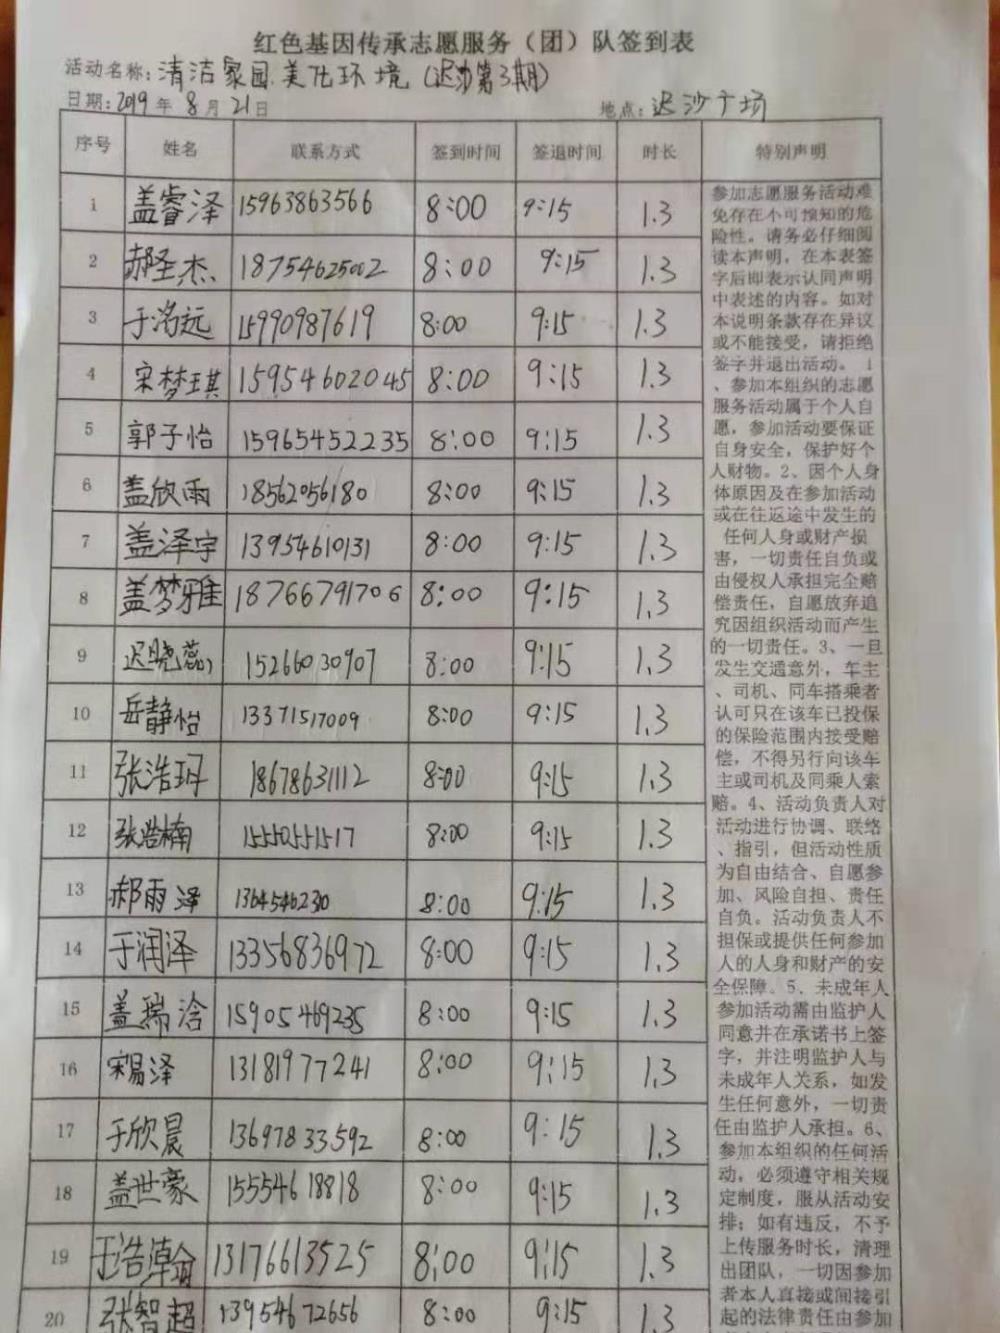 红色基因传承志愿服务（团）队签到表
活动名称：清洁家园.美化环境（迟办第3期）
日期：2019年8月21日 地点：迟沙广场
序号 姓名 联系方式 签到时间 签退时间 时长 特别声明
1 盖睿泽 15963863566 8:00 9:15 1.3
2 郝圣杰 18754625002 8:00 9:15 1.3
3 于洺远 15990987619 8:00 9:15 1.3
4 宋梦琪 15954602045 8:00 9:15 1.3
5 郭子怡 15965452235 8:00 9:15 1.3
6 盖欣雨 18562056180 8:00 9:15 1.3
7 盖泽宇 13954610131 8:00 9:15 1.3
8 盖梦雅 18766791706 8:00 9:15 1.3
9 迟晓蕊 15266030907 8:00 9:15 1.3
10 岳静怡 13371517009 8:00 9:15 1.3
11 张浩玥 18678631112 8:00 9:15 1.3
12 张浩楠 15550551517 8:00 9:15 1.3
13 郝雨泽 8:00 9:15 1.3
14 于润泽 13356836972 8:00 9:15 1.3
15 盖瑞浛 15905469235 8:00 9:15 1.3
16 宋易泽 13181977241 8:00 9:15 1.3
17 于欣晨 13697833592 8:00 9:15 1.3
18 盖世豪 15554618818 8:00 9:15 1.3
19 于浩瀚 13176613525 8:00 9:15 1.3
20 张智超 13954672656 8:00 9:15 1.3
参加志愿服务活动难
免存在不可预知的危
险性。请务必仔细阅
读本声明，在本表签
字后即表示认同声明
中表述的内容。如对
本说明条款存在异议
或不能接受，请拒绝
签字并退出活动。 1
、参加本组织的志愿
服务活动属于个人自
愿，参加活动要保证
自身安全，保护好个
人财物。2、因个人身
体原因及在参加活动
或在往返途中发生的
任何人身或财产损
害，一切责任自负或
由侵权人承担完全赔
偿责任，自愿放弃追
究因组织活动而产生
的一切责任。3、一旦
发生交通意外，车主
、司机、同车搭乘者
认可只在该车已投保
的保险范围内接受赔
偿，不得另行向该车
主或司机及同乘人索
赔。4、活动负责人对
活动进行协调、联络
、指引，但活动性质
为自由结合、自愿参
加、风险自担、责任
自负。活动负责人不
担保或提供任何参加
人的人身和财产的安
全保障。5、未成年人
参加活动需由监护人
同意并在承诺书上签
字，并注明监护人与
未成年人关系，如发
生任何意外，一切责
任由监护人承担。6、
参加本组织的任何活
动，必须遵守相关规
定制度，服从活动安
排；如有违反，不予
上传服务时长，清理
出团队，一切因参加
者本人直接或间接引
起的法律责任由参加